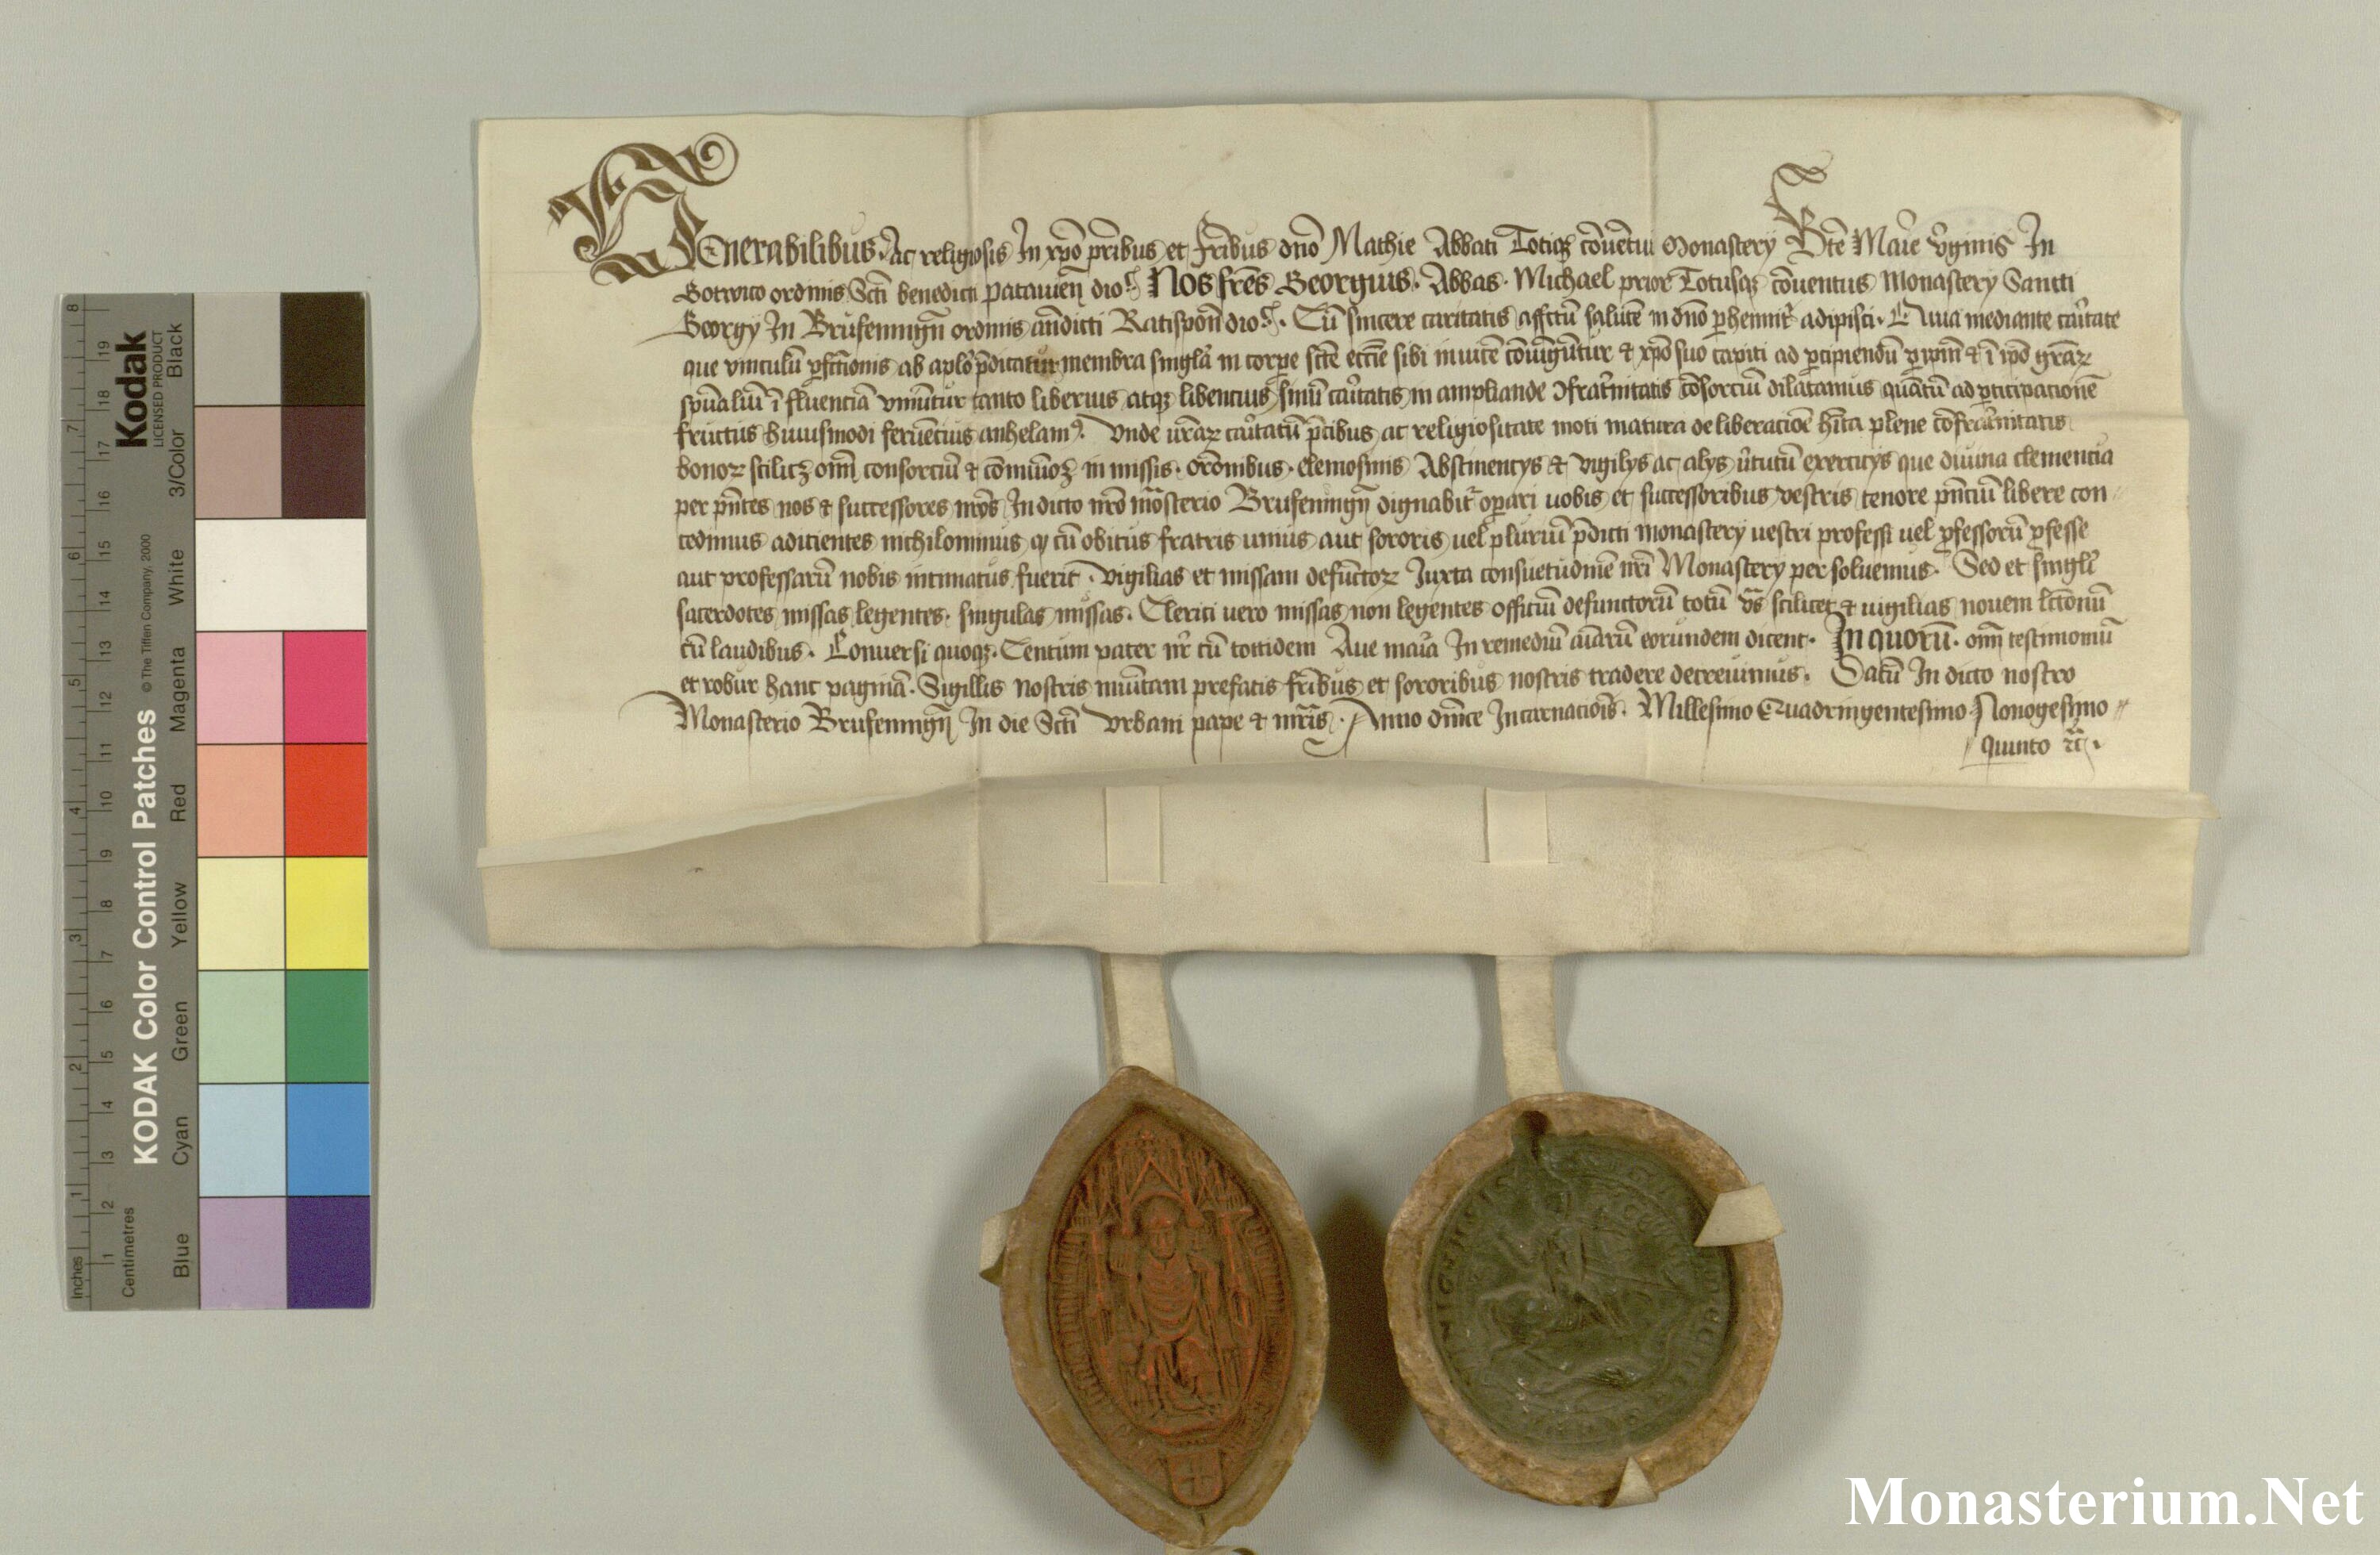 Venerabilibus. Ac religiosis In xpo p̄ribus et fr̄ibus dn̄o Mathie Abbati Totiqꝫ cōuētui Monastery Btē Marie v̓ginis In
Gotwico ordinis Scti benedicti patauień dioc̄ Nos fr̄es Georgius. Abbas. Michael prior Totusqꝫ cōuentus Monastery Sancti
Georgy In Brufeningń ordinis an̄dicti Ratispoń dioc̄. Cū sincere caritatis affctū salutē in dn̄o ꝑhennit̓ adipisci. Qua mediante car̓itate
que vinculū ꝑfctionis ab aplō p̄dicatur membra singl̓a in corꝑe sctē eccīe sibi inuicē cōiūgūtur & xpō suo capiti ad ꝑcipiendū grāꝝ
spūaliū īfluenciā vniūtur tanto liberius atqꝫ libencius sinū car̓itatis in ampliande ɔfrat̓nitatis cōsorciū dilatamus quātū ad ꝑticipacionē
fructus huiusmodi feruēcius anhelamꝰ. Vnde ur̄aꝝ car̓itatū p̄cibus ac religiositate moti matura deliberacioē hīta plene cōfrat̓nitatis
bonoꝝ scilicꝫ om̄ consorciū & cōmunioꝫ in missis. or̄onibus. elemosinis Abstinencys & vigilys ac alys v̓tutū exercicys que diuina clemencia
per pn̄tes nos & successores nr̄os In dicto nr̄o mōsterio Brufeningń dignabit̓ oꝑari uobis et successoribus vestris tenore pn̄ciū libere con
cedimus adicientes nichilominus ꝙ cū obitus fratris unius aut sororis uel pluriū p̄dicti monastery uestri professi uel ꝓfessorū ꝓfesse
aut professarū nobis intimatus fuerit. vigilias et missam defūctoꝝ Iuxta consuetudinē nr̄i Monastery persoluemus. Sed et singl̓i
sacerdotes missas legentes. singulas missas. Clerici uero missas non legentes officiū defunctorū totū vs̄ scilicet & uigilias nouem lctionū
cū laudibus. Conuersi quoqꝫ. Centum pater nr̄ cū tottidem Aue mar̓ia In remediū aīarū eorundem dicent. In quorū. om̄ testimoniū
et robur hanc paginā. Sigillis nostris munitam prefatis fr̄ibus et sororibus nostris tradere decreuimus. Datū In dicto nostro
Monasterio Brufeningń In die Scti Vrbani pape & mr̄is. Anno dn̄ice Incarnacionis. Millesimo Quadringentesimo Nonogesimo
quinto &c̄.
KODAK Color Control Patches
Kodak
LICENSED PRODUCT
© The Tiffen Company, 2000
Inches 1 2 3 4 5 6 7 8
Centimetres 1 2 3 4 5 6 7 8 9 10 11 12 13 14 15 16 17 18 19
Blue Cyan Green Yellow Red Magenta White 3/Color Black
Monasterium.Net